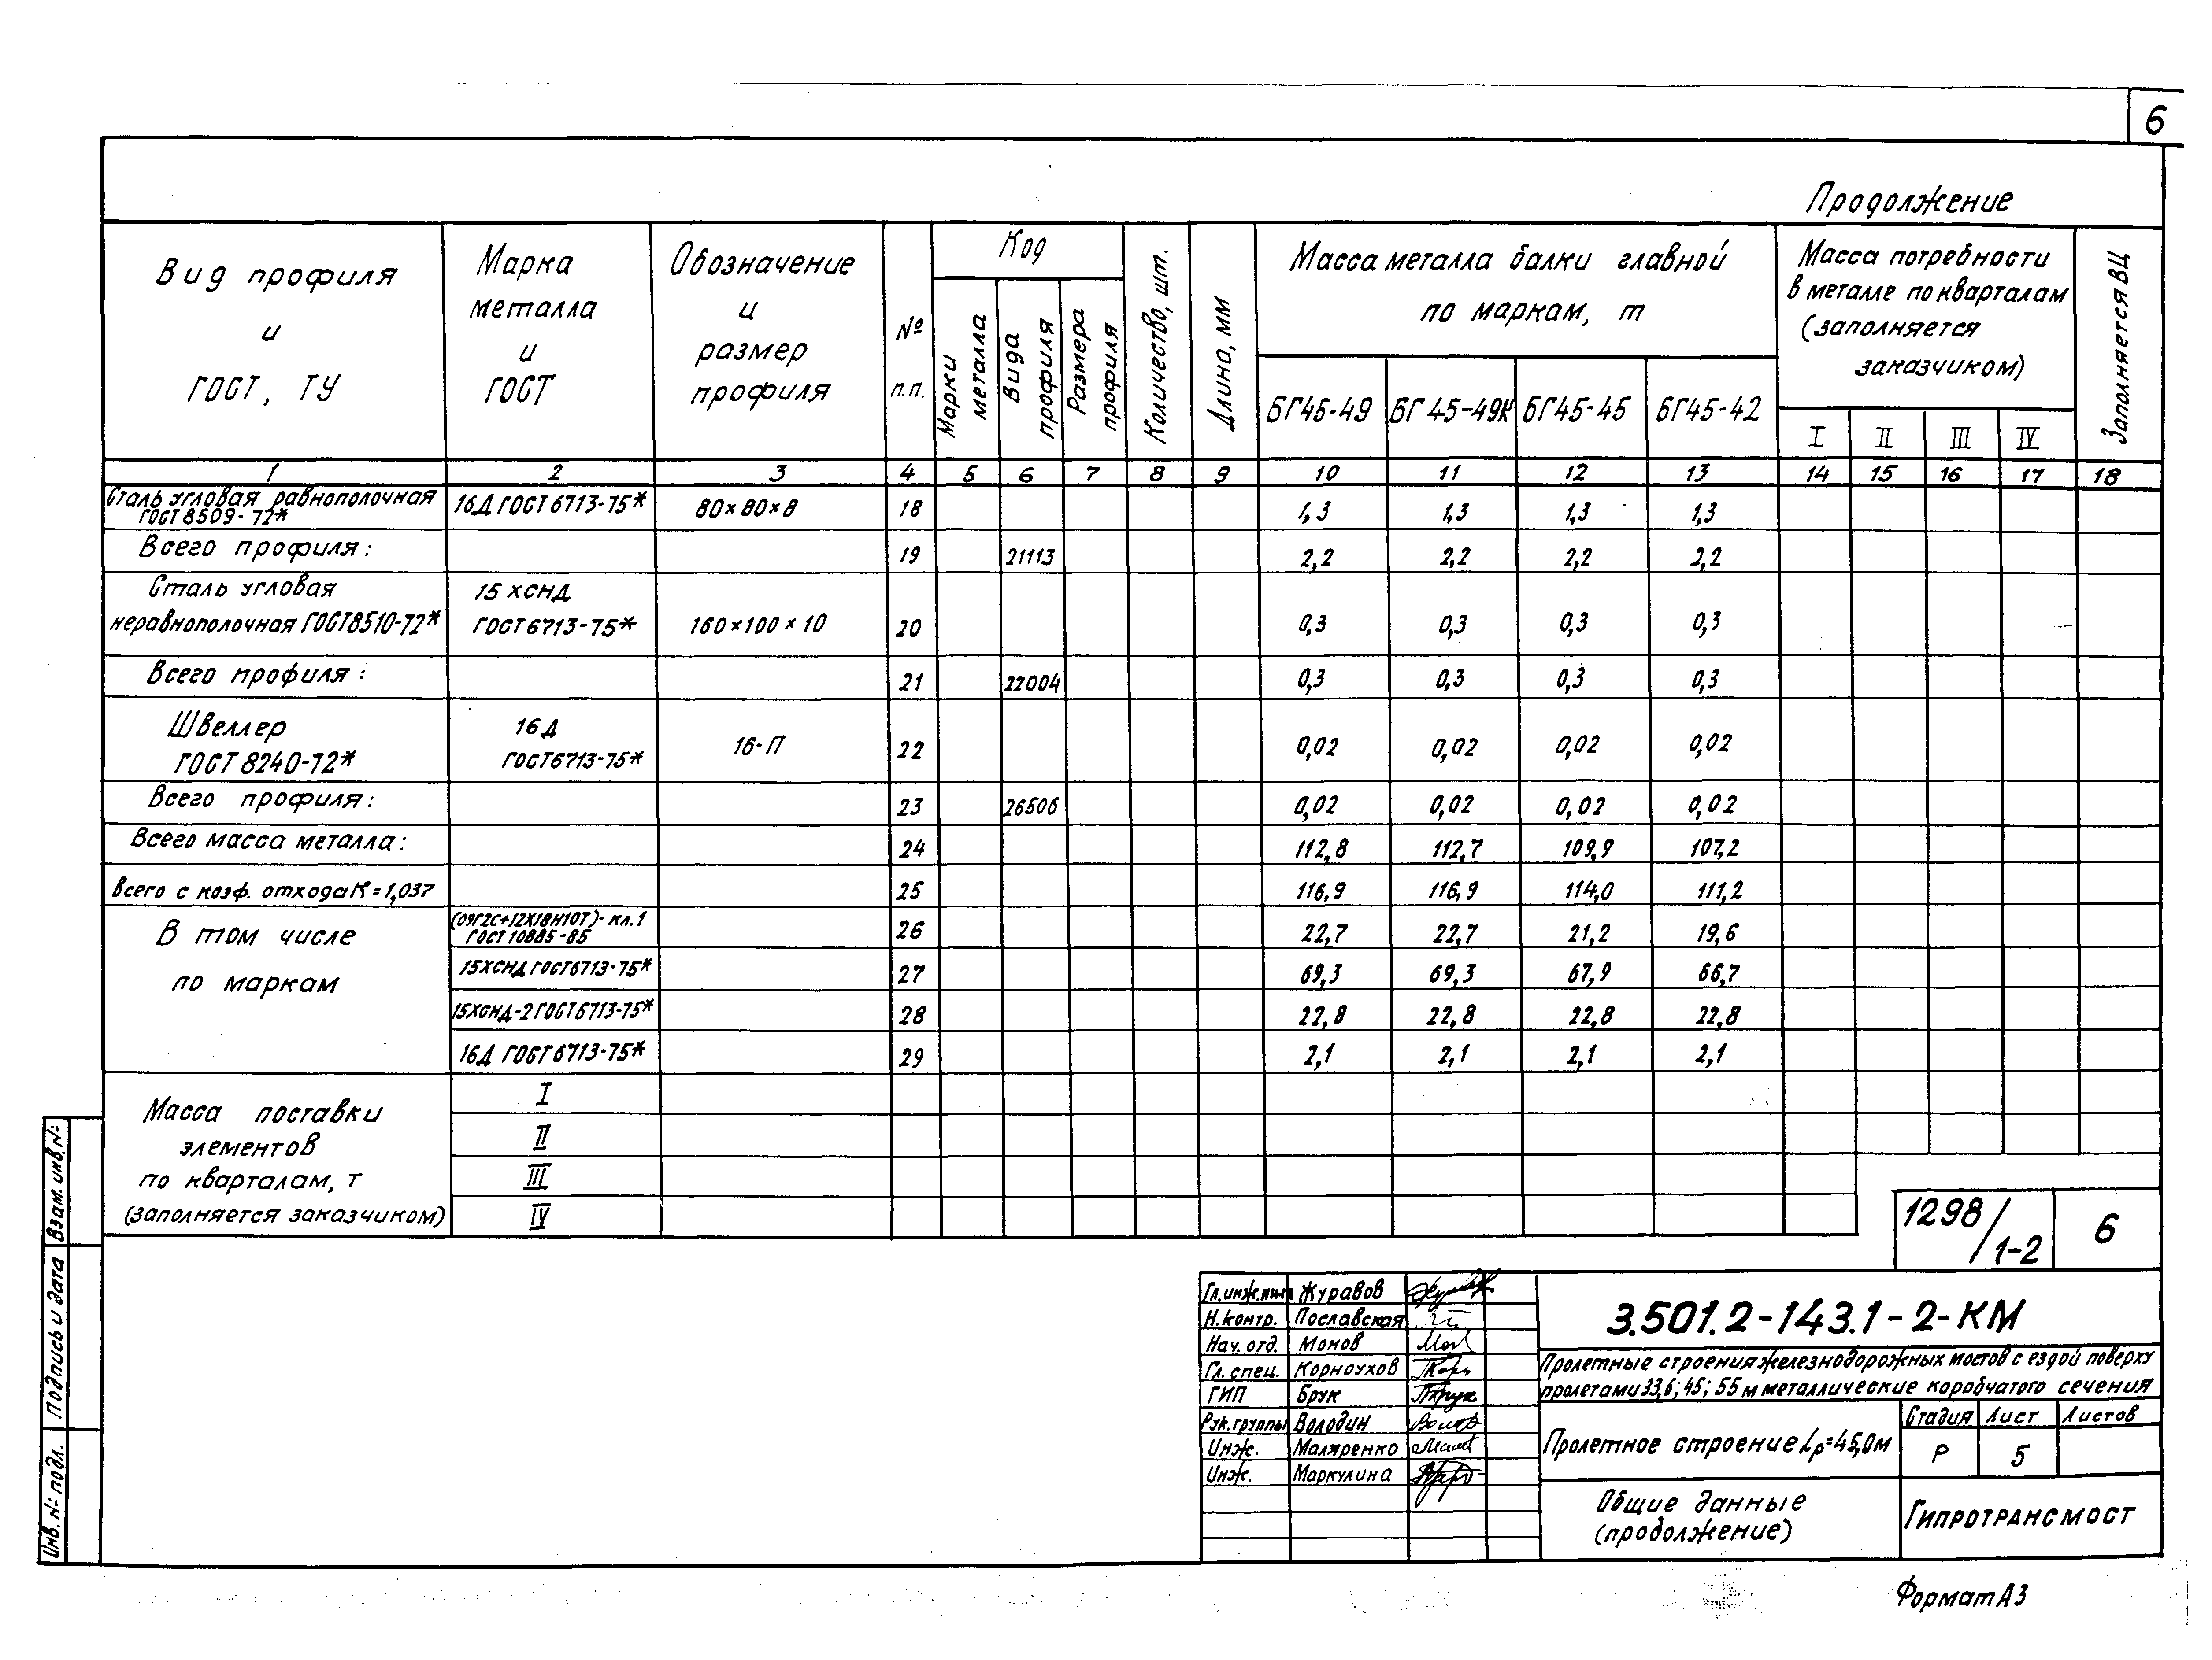 6
Продолжение
Вид профиля
и
ГОСТ, ТУ
Марка
металла
и
ГОСТ
Обозначение
и
размер
профиля
№
п.п.
Код
Марки
металла
Вида
профиля
Размера
профиля
Количество, шт.
Длина, мм
Масса металла балки главной
по маркам, т
БГ45-49 БГ45-49К БГ45-45 БГ45-42
Масса потребности
в металле по кварталам
(заполняется
заказчиком)
I II III IV
Заполняется ВЦ
1 2 3 4 5 6 7 8 9 10 11 12 13 14 15 16 17 18
Сталь угловая равнополочная
ГОСТ 8509-72*
16Д ГОСТ 6713-75* 80×80×8 18 1,3 1,3 1,3 1,3
Всего профиля: 19 21113 2,2 2,2 2,2 2,2
Сталь угловая
неравнополочная ГОСТ8510-72*
15 ХСНД
ГОСТ 6713-75* 160×100×10 20 0,3 0,3 0,3 0,3
Всего профиля: 21 22004 0,3 0,3 0,3 0,3
Швеллер
ГОСТ 8240-72*
16Д
ГОСТ6713-75* 16-П 22 0,02 0,02 0,02 0,02
Всего профиля: 23 26506 0,02 0,02 0,02 0,02
Всего масса металла: 24 112,8 112,7 109,9 107,2
Всего с коэф. отхода К=1,037 25 116,9 116,9 114,0 111,2
В том числе
по маркам
(09Г2С+12Х18Н10Т)-кл.1
ГОСТ 10885-85 26 22,7 22,7 21,2 19,6
15ХСНД ГОСТ6713-75* 27 69,3 69,3 67,9 66,7
15ХСНД-2 ГОСТ6713-75* 28 22,8 22,8 22,8 22,8
16Д ГОСТ6713-75* 29 2,1 2,1 2,1 2,1
Масса поставки
элементов
по кварталам, т
(заполняется заказчиком)
I
II
III
IV
Взам. инв. №
Подпись и дата
Инв. № подл.
1298/1-2 6
Гл.инж. Журавов
Н.контр. Пославская
Нач. отд. Монов
Гл. спец. Корноухов
ГИП Брук
Рук.группы Володин
Инж. Маляренко
Инж. Маркулина
3.501.2-143.1-2-КМ
Пролетные строения железнодорожных мостов с ездой поверху
пролетами 33,6; 45; 55 м металлические коробчатого сечения
Пролетное строение Lр=45,0м
Стадия Лист Листов
Р 5
Общие данные
(продолжение)
Гипротрансмост
Формат А3